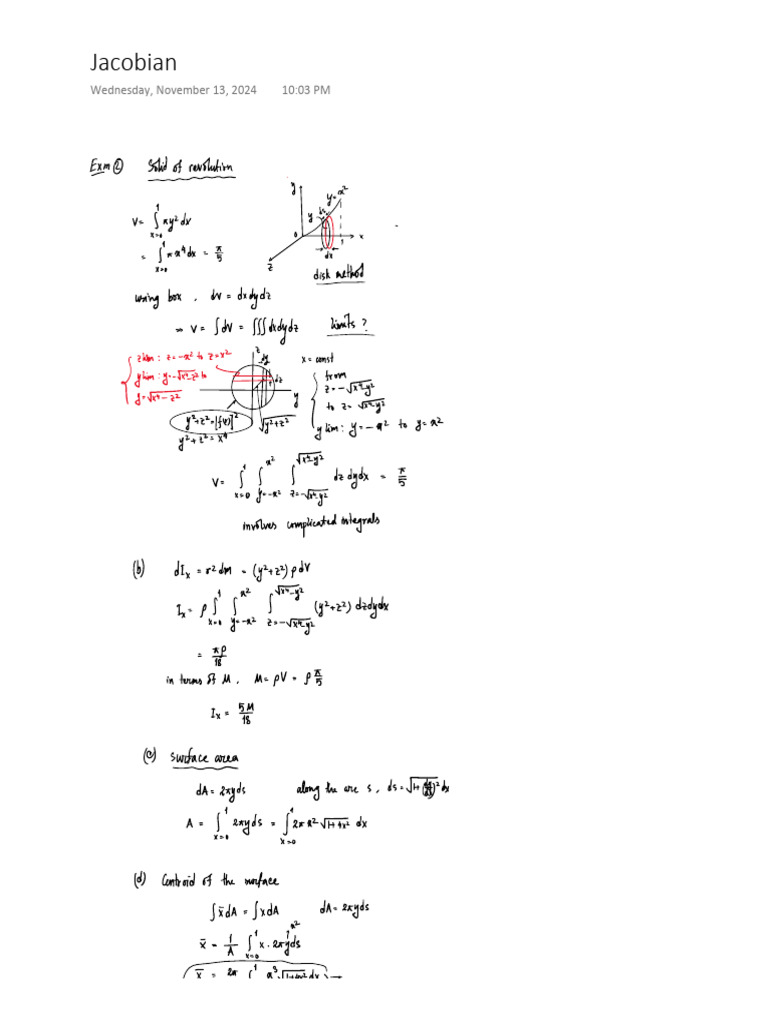 Jacobian
Wednesday, November 13, 2024 10:03 PM
Exm ② Solid of revolution
V = ∫_{x=0}^{1} πy² dx
= ∫_{x=0}^{1} π x⁴ dx = π/5
y
y = x²
y
ds
0
1
x
dx
z
disk method
using box , dV = dxdydz
⇒ V = ∫dV = ∫∫∫ dxdydz limits ?
z lim : z = -x² to z = x²
y lim : y = -√(x⁴-z²) to
y = √(x⁴-z²)
z
dy
dz
y
y² + z² = [f(x)]²
y² + z² = x⁴
√(y²+z²)
x = const
from
z = -√(x⁴-y²)
to z = √(x⁴-y²)
y lim : y = -x² to y = x²
V = ∫_{x=0}^{1} ∫_{y=-x²}^{x²} ∫_{z=-√(x⁴-y²)}^{√(x⁴-y²)} dz dy dx = π/5
involves complicated integrals
(b) dIₓ = r² dm = (y²+z²) ρ dV
Iₓ = ρ ∫_{x=0}^{1} ∫_{y=-x²}^{x²} ∫_{z=-√(x⁴-y²)}^{√(x⁴-y²)} (y²+z²) dzdydx
= πρ/18
in terms of M , M = ρV = ρ π/5
Iₓ = 5M/18
(c) surface area
dA = 2πyds along the arc s , ds = √(1+(dy/dx)²) dx
A = ∫_{x=0}^{1} 2πyds = ∫_{x=0}^{1} 2π x² √(1+4x²) dx
(d) Centroid of the surface
∫x̄dA = ∫xdA dA = 2πyds
x̄ = 1/A ∫_{x=0}^{1} x · 2πyds
x²
x̄ = 2π ∫^{1} x³ √(1+4x²) dx